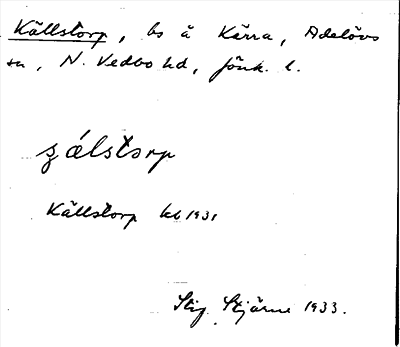 Källstorp, bs å Kärra, Adelövs
sn, N. Vedbo hd, Jönk. l.
sälstorp
Källstorp kb 1931
Stig Stjärne 1933.